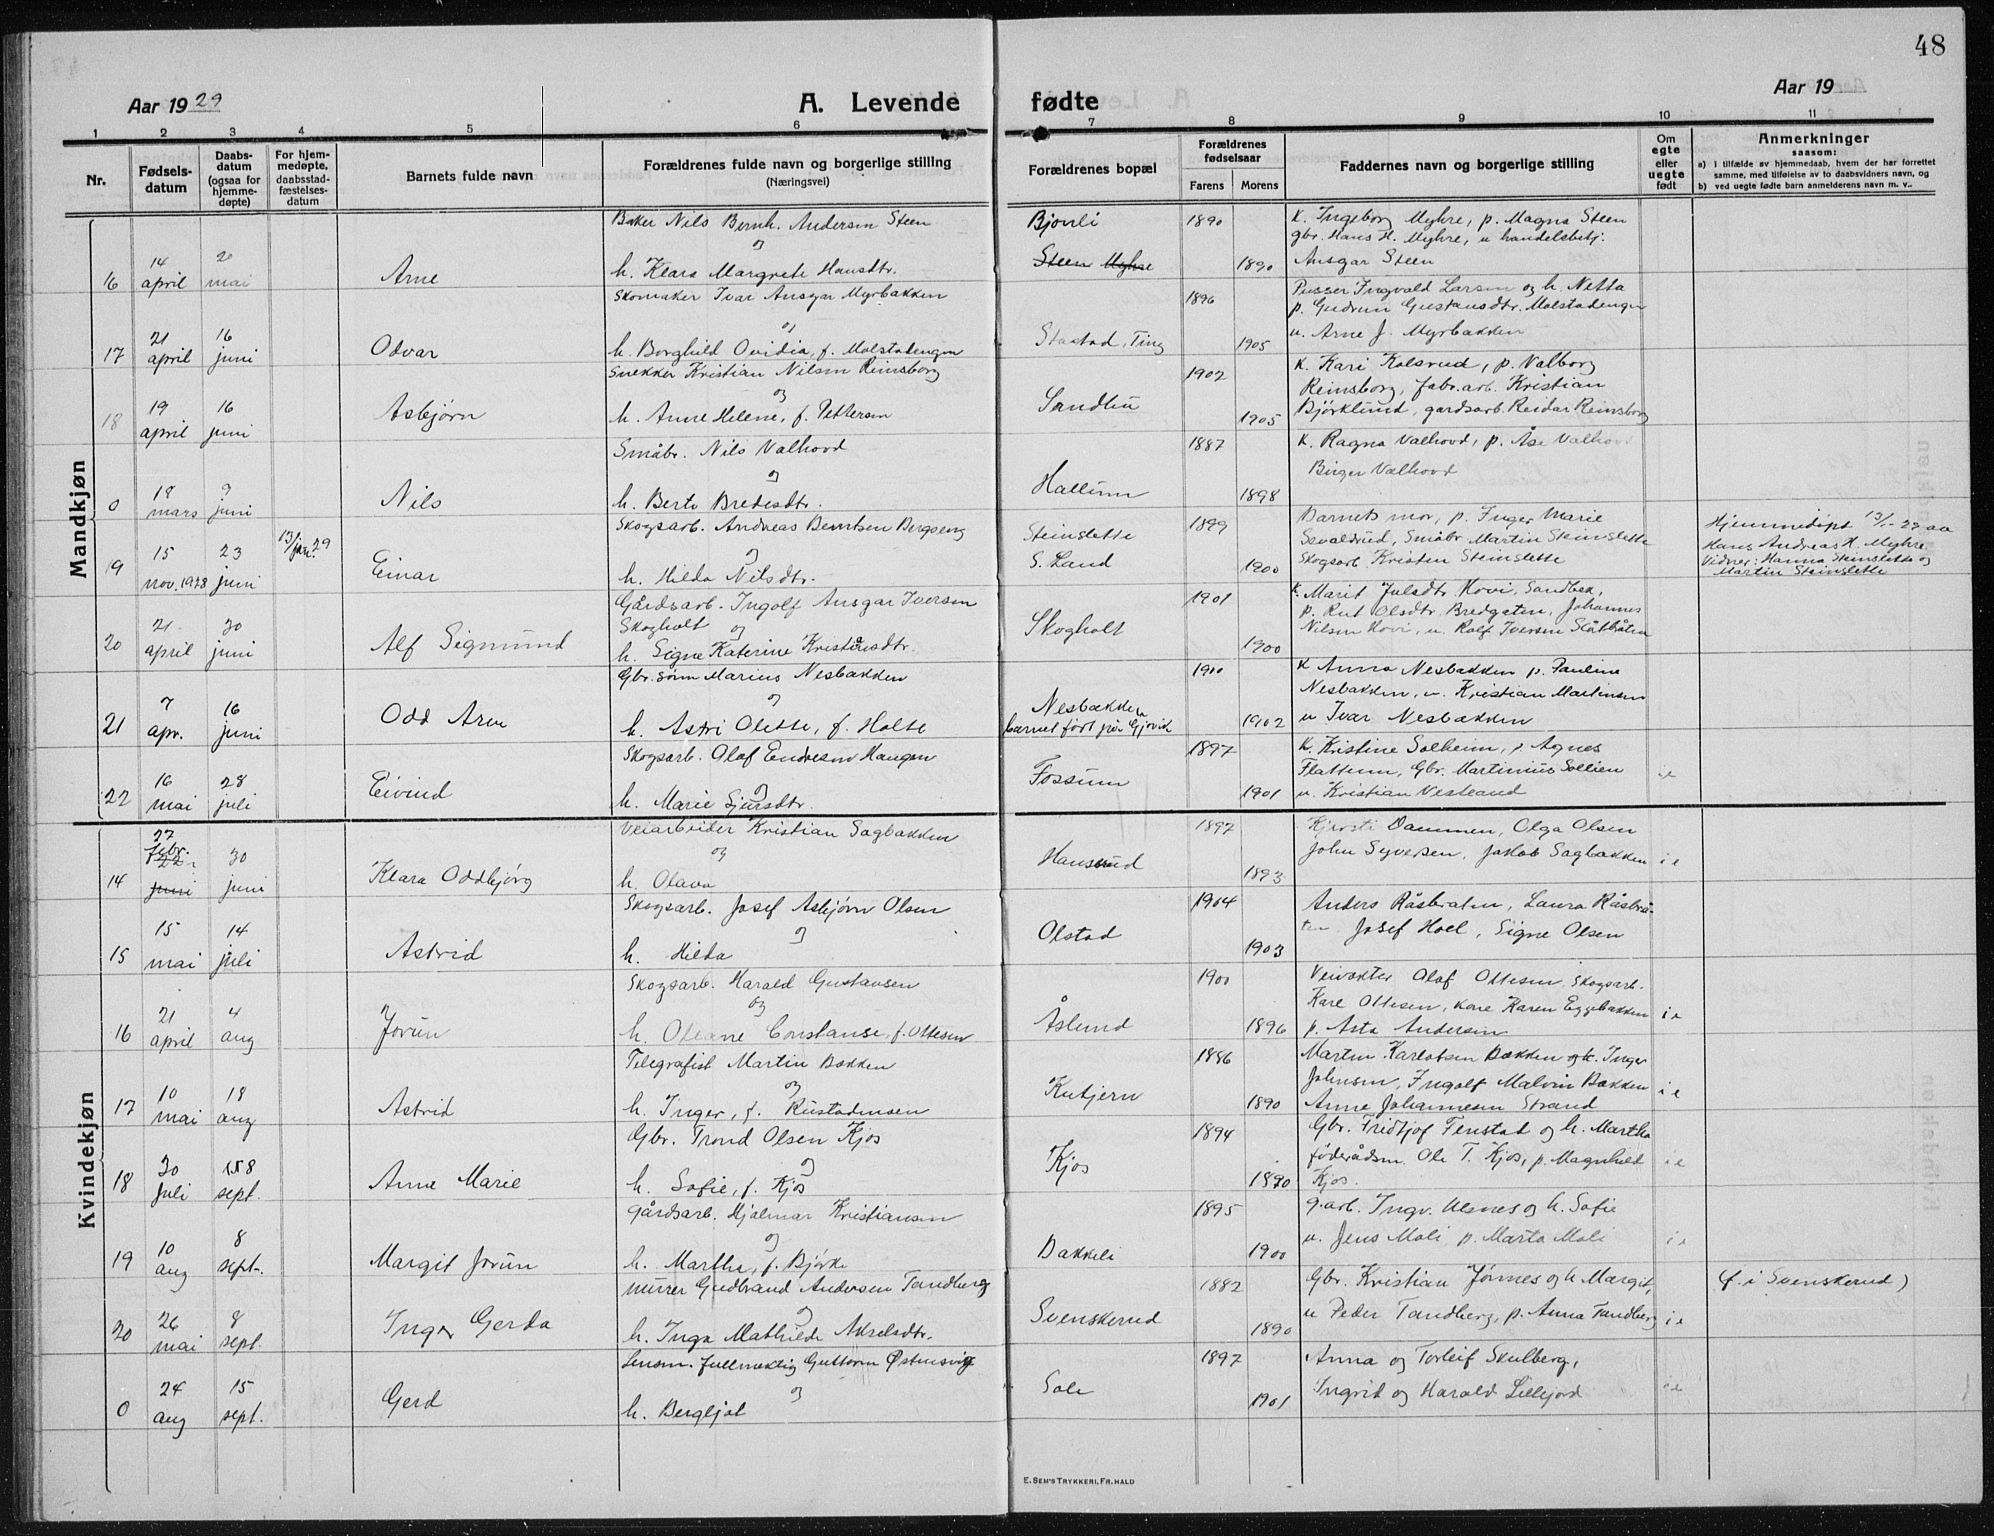 48
Aar 1929
A. Levende fødte
Aar 19
1 2 3 4 5 6 7 8 9 10 11
Nr.
Fødsels-
datum
Daabs-
datum
(ogsaa for
hjemme-
døpte)
For hjem-
medøpte,
daabsstad-
fæstelses-
datum
Barnets fulde navn
Forældrenes fulde navn og borgerlige stilling
(Næringsvei)
Forældrenes bopæl
Forældrenes
fødselsaar
Farens Morens
Faddernes navn og borgerlige stilling
Om
egte
eller
uegte
født
Anmerkninger
saasom:
a) i tilfælde av hjemmedaab, hvem der har forrettet
samme, med tilføielse av to daabsvidners navn, og
b) ved uegte fødte barn anmelderens navn m. v..
Mandkjøn
Baker Nils Bernh. Andersen Steen Bjonli 1890 K. Ingeborg Myhre, p. Magna Steen
og gbr. Hans H. Myhre, u handelsbetj.
16 14 april 20 mai Arne h. Klara Margrete Hansdtr. Steen Myhre 1890 Ansgar Steen
Skomaker Ivar Ansgar Myrbakken 1896 Pusser Ingvald Larsen og h. Netta
og p. Gudrun Gustavsdtr. Molstadengen
17 21 april 16 juni Odvar h. Borghild Ovidia, f. Molstadengen Stastad, Ting 1905 u. Arne J. Myrbakken
Snekker Kristian Nilsen Reinsborg 1902 K. Kari Kolsrud, p. Valborg
og Reinsborg, fabr.arb. Kristian
18 19 april 16 juni Asbjørn h. Anne Helene, f. Pettersen Sandliu 1905 Björklund, gardsarb. Reidar Reinsborg
Småbr. Nils Valhovd 1887 K. Ragna Valhovd, p. Åse Valhovd
og Birger Valhovd
0 18 mars 9 juni Nils h. Berte Bredesdtr. Hallum 1898
Skogsarb. Andreas Berntsen Bergseng Steinslette 1899 Barnets mor, p. Inger Marie Hjemmedøpt 13/1-29 av
og Sevaldrud, Småbr Martin Steinslette Hans Andreas H. Myhre.
19 15 nov. 1928 23 juni 13/jan. 29 Einar h. Hilda Nilsdtr. S. Land 1900 Skogsarb. Kristen Steinslette Vidner: Hanna Steinslette og
Martin Steinslette
Gårdsarb. Ingolf Ansgar Iversen 1901 K. Marit Julsdtr Hovi, Sandbek,
Skogholt og Skogholt p. Rut Olsdtr. Bredgaten, Johannes
20 21 april 30 juni Alf Sigmund h. Signe Katerine Kristiansdtr. 1900 Nilsen Hovi, u. Rolf Iversen
Gbr. sönn Marius Nesbakken 1900 K Anna Nesbakken p. Pauline
og Nesbakken Nesbakken, u. Kristian Martinsen
21 7 apr. 16 juni Odd Arne h. Astri Olette, f. Holte barnet født på Gjøvik 1902 u Ivar Nesbakken
Skogsarb. Olaf Endresen Haugen 1897 K. Kristine Solheim, p Agnes
og Flattum, Gbr. Martinius Sollien ie
22 16 mai 28 juli Eivind h. Marie Sjursdtr. Fossum 1901 u. Kristian Vestland
Kvindekjøn
Veiarbeider Kristian Sagbakken 1897 Kjersti Dammen, Olga Olsen
og John Syversen, Jakob Sagbakken ie
14 27 febr. 22 juni 30 juni Klara Oddbjørg h. Olava Hansrud 1893
Skogsarb. Josef Asbjørn Olsen 1904 Anders Råsbraten, Laura Råsbrå-
og ten Josef Hoel, Signe Olsen
15 15 mai 14 juli Astrid h. Hilda Olstad 1903
Skogsarb. Harald Gustavsen 1900 Veivokter Olaf Ottesen, Skogsarb.
og Kare Ottesen, kone Karen Eggebakken ie
16 21 april 4 aug Jorun h. Oleane Constanse, f. Ottesen Åslund 1896 p. Asta Andersen
Telegrafist Martin Bakken 1886 Martin Karlotsen Bakken og h. Inger
og Johnsen, Ingolf Malvin Bakken ie
17 10 mai 18 aug Astrid h. Inger, f. Rustadensen Kutjern 1890 Anne Johannesen Strand
Gbr. Trond Olsen Kjos 1894 Gbr. Fridtjof Fenstad og h. Martha
og föderådsm. Ole T. Kjos, p. Magnhild ie
18 20 juli 8 sept. Anne Marie h. Sofie, f. Kjos Kjos 1890 Kjos.
Gårdsarb. Hjalmar Kristiansen 1895 g.arb. Ingv. Ulsnes og h. Sofie
og u. Jens Moli p. Marta Moli ie
19 10 aug 8 sept. Margit Jorun h. Martha, f. Björke Bakkeli 1900
Murer Gudbrand Andersen Tandberg 1882 Gbr. Kristian Jönnes og h Margit, (f. i Svenskerud)
og u Peder Tandberg, p. Anna Tandberg ie
20 26 mai 8 sept. Inger Gerda h. Inga Mathilde Akselsdtr. Svenskerud 1890
Lensm. fullmektig Guttorm Østensvig 1897 Anna og Torleif Skulberg,
og Ingrid og Harald Lillejord ie
0 24 aug 15 sept. Gerd h. Bergljot Sole 1901
E. SEM'S TRYKKERI, FR. HALD